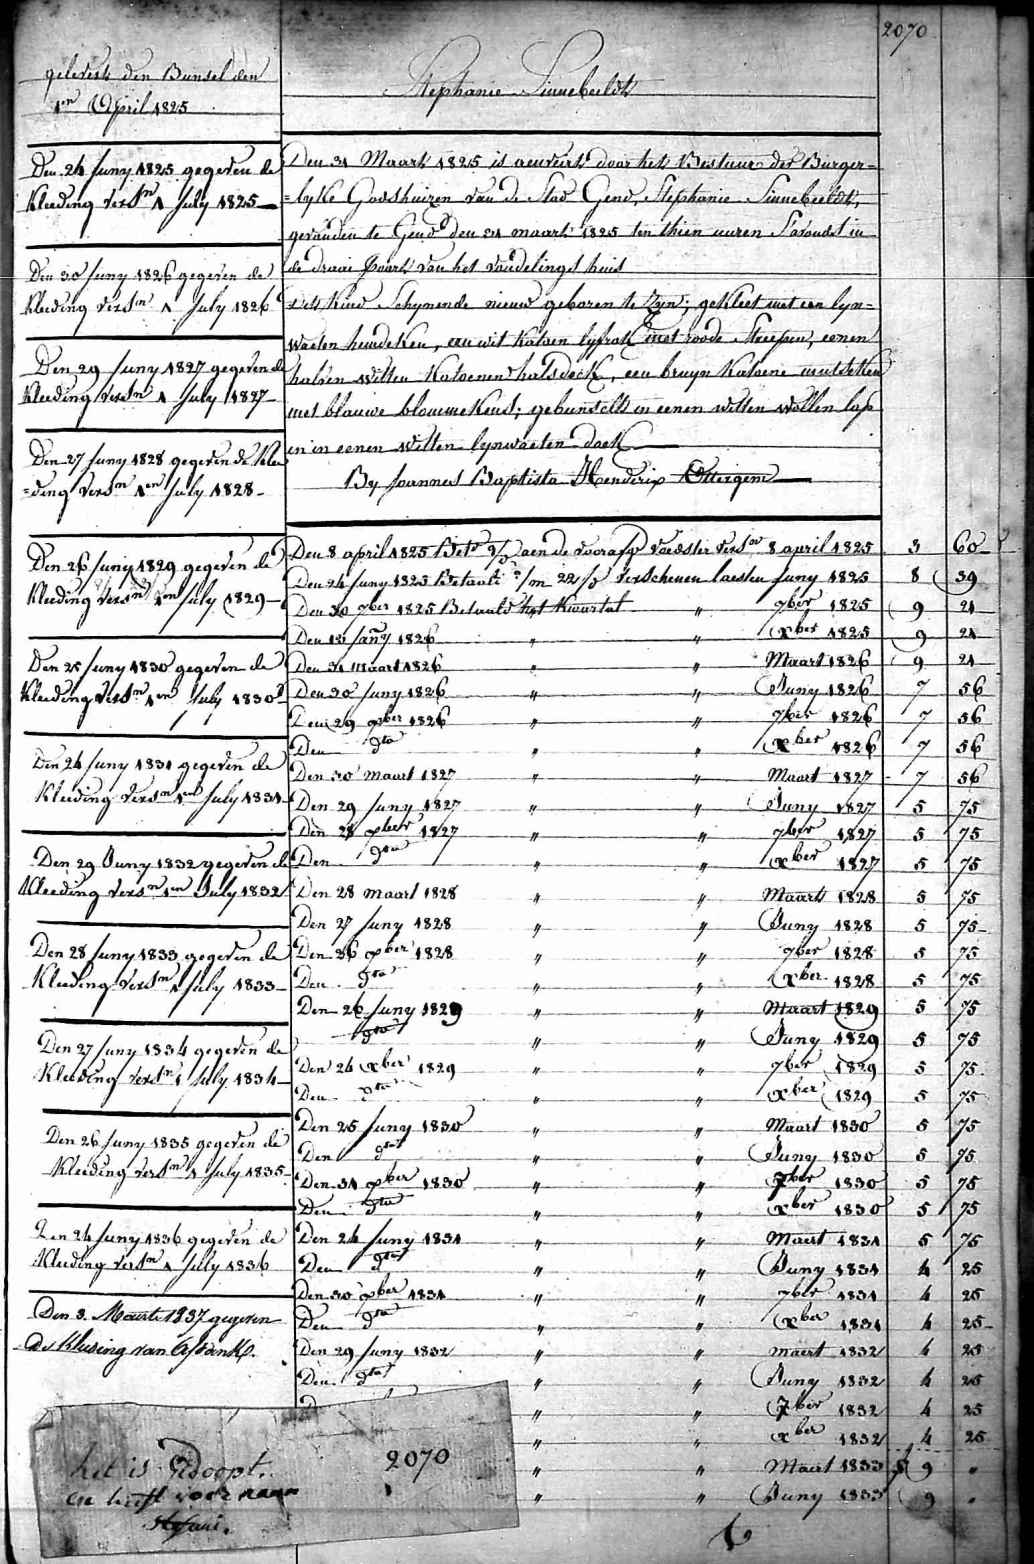 2070
geleverk den Bunsel den
1en April 1825
Stephanie Sinnebeeldt
Den 24 Juny 1825 gegeven de
Kleeding versn 1 July 1825
Den 30 Juny 1826 gegeven de
Kleeding versn 1 July 1826
Den 29 Juny 1827 gegeven de
Kleeding versn 1 July 1827
Den 27 Juny 1828 gegeven de Klee
=ding versn 1en July 1828
Den 26 Juny 1829 gegeven de
Kleeding versn 1en July 1829
Den 25 Juny 1830 gegeven de
Kleeding versn 1en July 1830
Den 24 Juny 1831 gegeven de
Kleeding versn 1en July 1831
Den 29 Juny 1832 gegeven de
Kleeding versn 1en July 1832
Den 28 Juny 1833 gegeven de
Kleeding versn 1 July 1833
Den 27 Juny 1834 gegeven de
Kleeding versn 1 July 1834
Den 26 Juny 1835 gegeven de
Kleeding versn 1 July 1835
Den 24 Juny 1836 gegeven de
Kleeding versn 1 July 1836
Den 3. Maarte 1837 gegeven
de Kleeding van
Den 31 Maart 1825 is aenveirt door het Bestuur der Burger=
=lyke Godshuizen van de Stad Gend, Stephanie Sinnebeeldt,
gevonden te Gend den 31 maart 1825 ten thien uuren S'avonds in
de draai Poort van het vondelings huis
Dit Kind Schynende nieuw geboren te Zyn; gekleet met een lyn=
waeten hemdeken, een wit Katoen lyfrok met roode Streepen, eenen
halven witten Katoenen halsdoek, een bruyn Katoene mutsken
met blauwe blommekens; gebunselt in eenen witten wollen lap
en in eenen witten lynwaeten doek
By Joannes Baptista Hendrix Ottergem
Den 8 april 1825 Bet aen de voorafg voedster versn 8 april 1825 3 60
Den 24 Juny 1825 Betaalt verschenen laesten Juny 1825 8 39
Den 30 7ber 1825 Betaald het Kwartal " 7ber 1825 9 21
Den 13 Jany 1826 " " Xber 1825 9 21
Den 31 maart 1826 " " Maart 1826 9 21
Den 30 Juny 1826 " " Juny 1826 7 56
Den 29 xber 1826 " " 7ber 1826 7 56
Den dto " " Xber 1826 7 56
Den 30 maart 1827 " " Maart 1827 7 56
Den 29 Juny 1827 " " Juny 1827 5 75
Den 28 xber 1827 " " 7ber 1827 5 75
Den dto " " Xber 1827 5 75
Den 28 maart 1828 " " Maart 1828 5 75
Den 27 Juny 1828 " " Juny 1828 5 75
Den 26 xber 1828 " " 7ber 1828 5 75
Den dto " " Xber 1828 5 75
Den 26 Juny 1829 " " Maart 1829 5 75
dto " " Juny 1829 5 75
Den 24 Xber 1829 " " 7ber 1829 5 75
Den dto " " Xber 1829 5 75
Den 25 Juny 1830 " " Maart 1830 5 75
Den dto " " Juny 1830 5 75
Den 31 xber 1830 " " 7ber 1830 5 75
Den dto " " Xber 1830 5 75
Den 24 Juny 1831 " " Maert 1831 5 75
Den dto " " Juny 1831 4 25
Den 30 xber 1831 " " 7ber 1831 4 25
Den dto " " Xber 1831 4 25
Den 29 Juny 1832 " " maert 1832 4 25
Den dto " " Juny 1832 4 25
" " 7ber 1832 4 25
" " Xber 1832 4 25
" " Maert 1833 9 "
" " Juny 1833 9 "
het is Gedoopt. 2070
en heeft voor naam
Stefani.